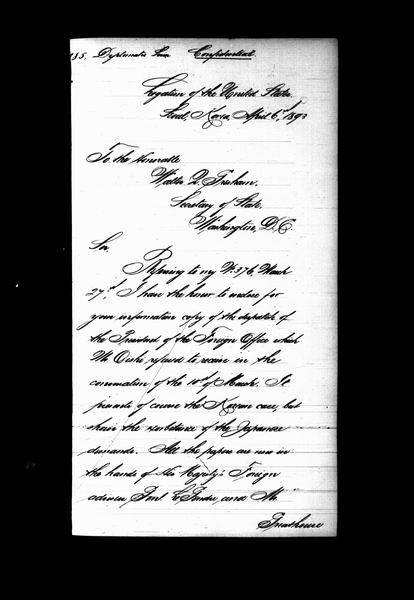 185. Diplomatic Series. Confidential.
Legation of the United States
Seoul, Korea, April 6th 1893
To the Honorable
Walter Q. Gresham.
Secretary of State,
Washington, D.C.
Sir,
Referring to my No. 376, March
27th, I have the honor to enclose for
your information copy of the despatch of
the President of the Foreign Office which
Mr. Oishi refused to receive in the
conversation of the 10th of March. It
presents of course the Korean case, but
shows the substance of the Japanese
demands. All the papers are now in
the hands of His Majesty's Foreign
adviser, and Mr.
Greathouse